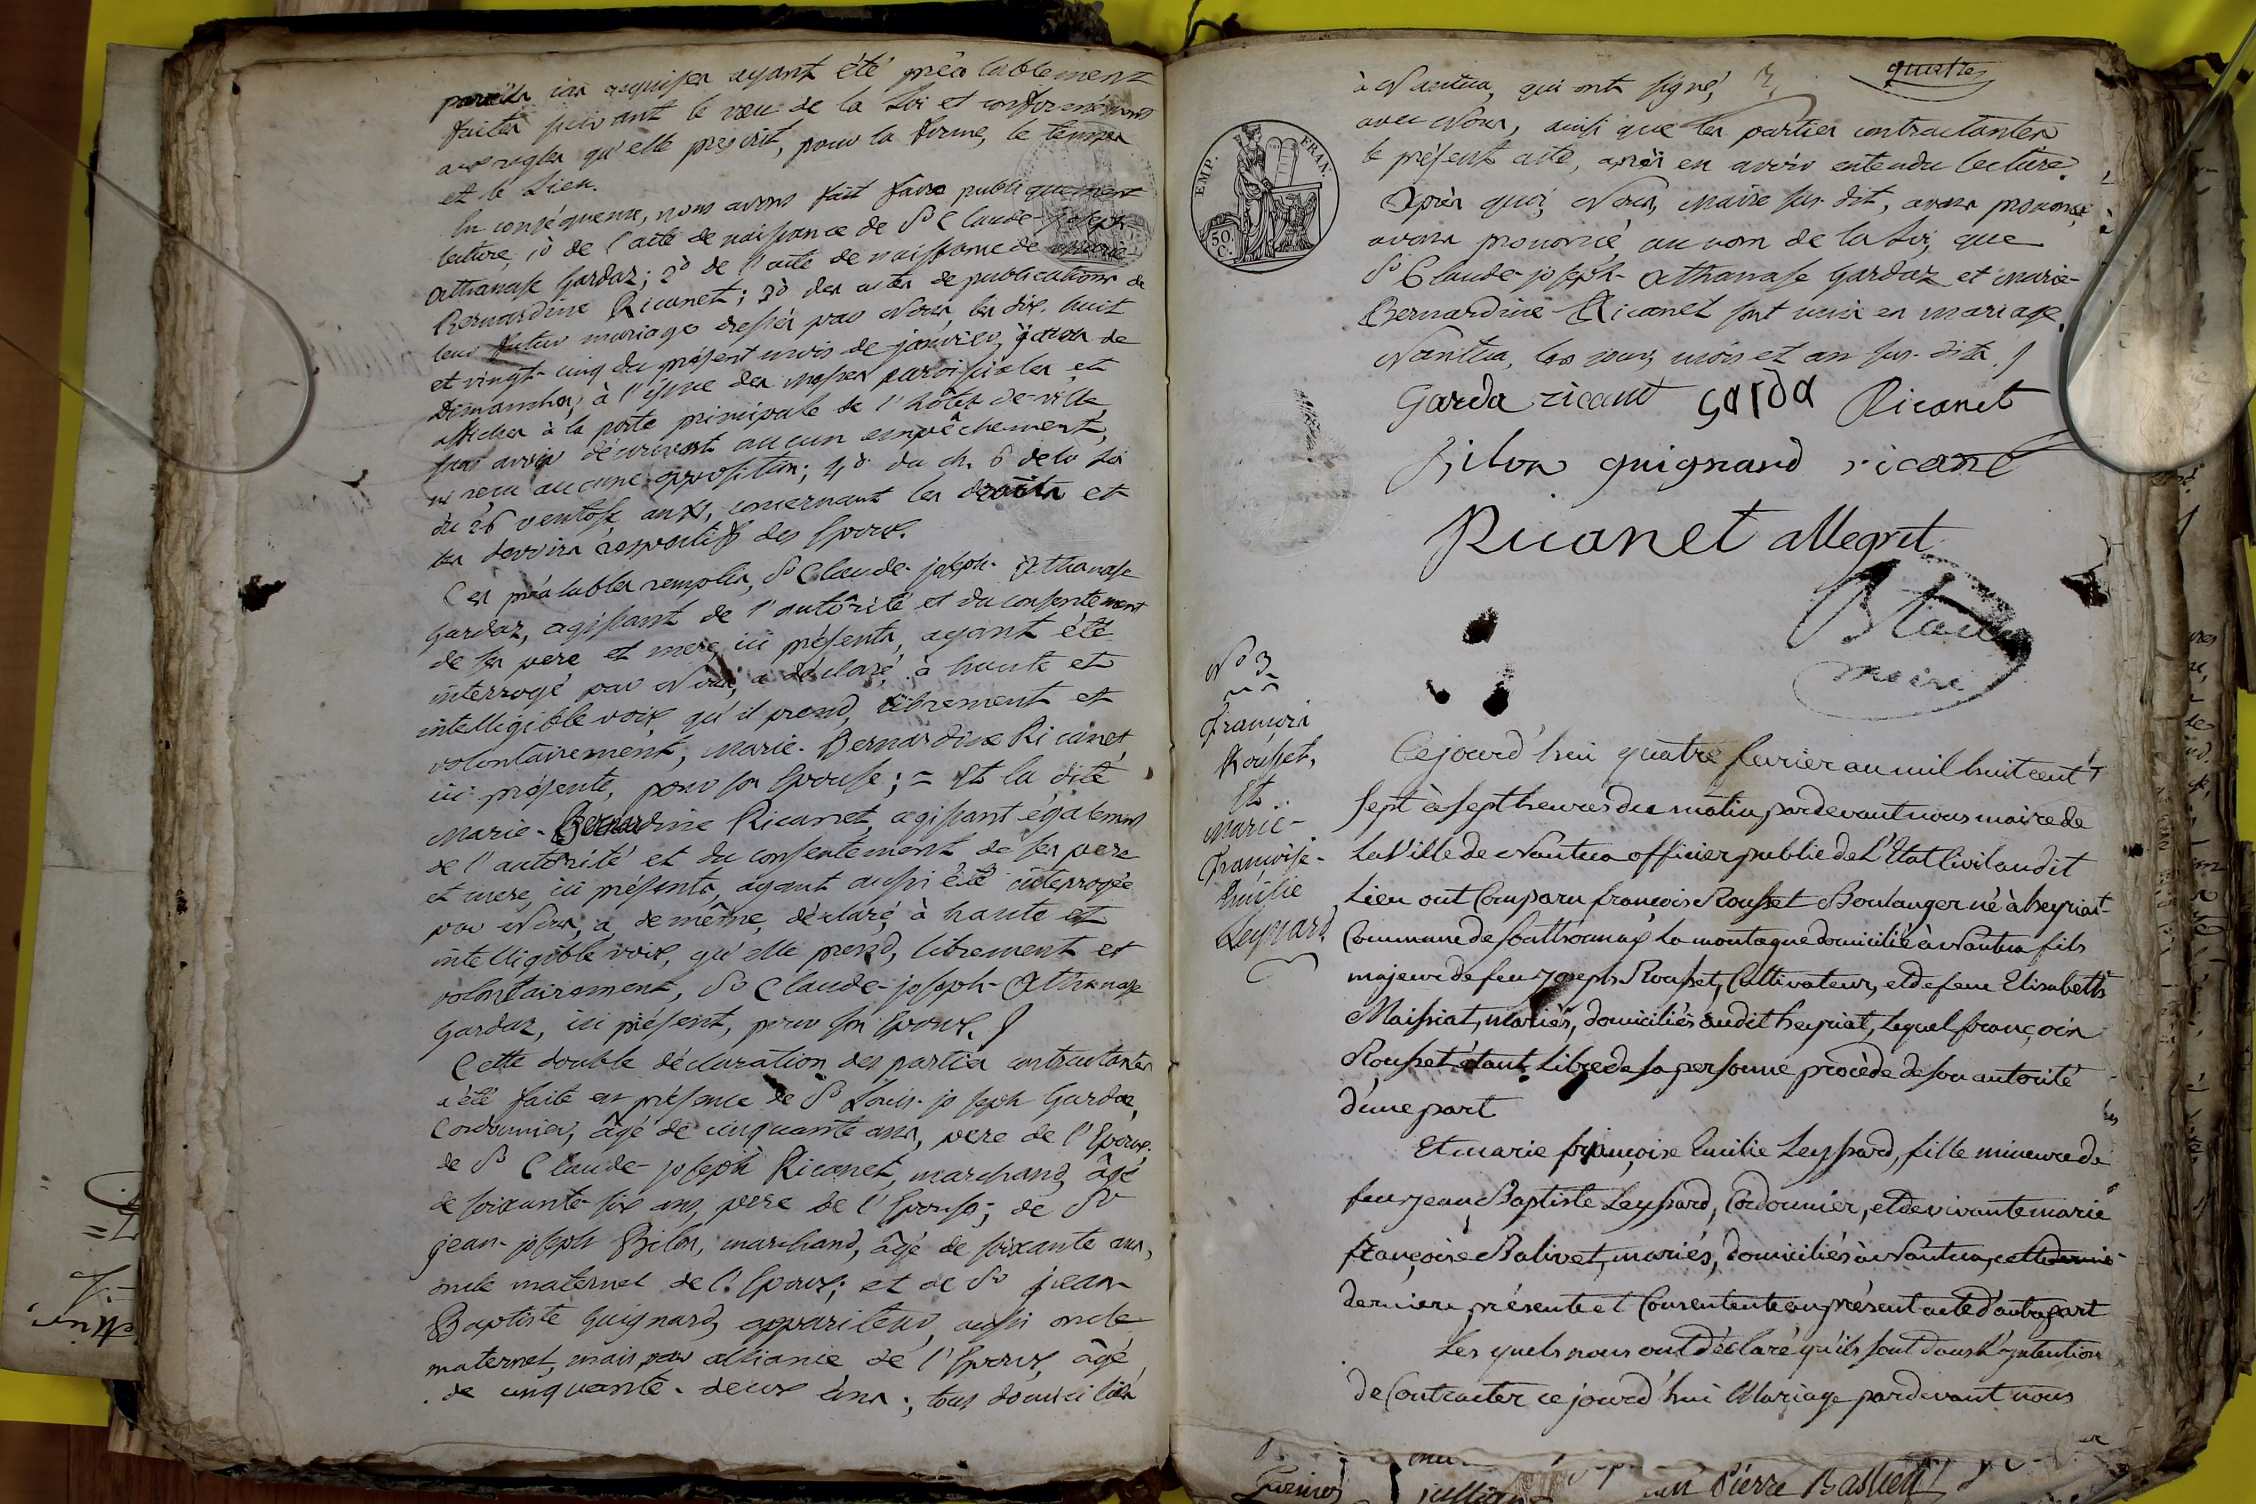 pareils cas requises ayant été préalablement
faites suivant le vœu de la Loi et conformément
aux regles qu'elle prescrit, pour la forme, le temps
et le Lieu.
En conséquence, nous avons fait faire publiquement
lecture, 1o de l'acte de naissance de Sr Claude-joseph
Athanase Gardaz; 2o de l'acte de naissance de marie
Bernardine Ricanet; 3o des actes de publications de
leur futur mariage dressés par Nous les dix-huit
et vingt-cinq du présent mois de janvier, jours de
Dimanche, à l'issue des messes paroissiales et
affichés à la porte principale de l'hôtel de-ville,
sans avoir découvert aucun empêchement,
ni reçu aucune opposition; 4o du ch. 6 de la Loi
du 26 ventose an XI, concernant les droits et
les devoirs respectifs des Epoux.
Ces préalables remplis, Sr Claude-joseph-Athanase
Gardaz, agissant de l'autorité et du consentement
de ses pere et mere ici présents, ayant été
interrogé par Nous, a déclaré à haute et
intelligible voix, qu'il prend, librement et
volontairement, Marie-Bernardine Ricanet,
ici présente, pour son Epouse; = Et la dite
Marie-Bernardine Ricanet, agissant également
de l'autorité et du consentement de ses pere
et mere ici présents, ayant aussi été interrogée
par Nous, a de même, déclaré, à haute et
intelligible voix, qu'elle prend, librement et
volontairement, Sr Claude-joseph-Athanase
Gardaz, ici présent, pour son Epoux.
Cette double déclaration des parties contractantes
a été faite en présence de Sr Louis-joseph Gardaz,
Cordonnier, âgé de cinquante ans, pere de l'Epoux,
de Sr Claude-joseph Ricanet, marchand, âgé
de soixante-six ans, pere de l'Epouse; de Sr
jean-joseph Bilon, marchand, âgé de soixante ans,
oncle maternel de l'Epoux; et de Sr jean
Baptiste Guignard, appariteur, aussi oncle
maternel, mais par alliance de l'Epoux, âgé
de cinquante-deux ans; tous domiciliés
quatre
à Nantua, qui ont signé,
avec Nous, ainsi que les parties contractantes
le présent acte, après en avoir entendu lecture.
Après quoi, Nous, Maire sus-dit, avons prononcé
avons prononcé, au nom de la Loi, que
Sr Claude-joseph-Athanase Gardaz et Marie-
Bernardine Ricanet sont unis en mariage.
Nantua, les jour, mois et an sus-dits.
EMP. FRAN.
50.
C.
Garda ricanet garda Ricanet
Bilon guignard ricanet
Ricanet allegret
maire
No 3
François
Rousset,
Et
Marie-
Françoise-
Emilie
Leyssard
Cejourd'hui quatre fevrier an mil huit cent
sept à sept heures du matin, pardevant nous maire de
La Ville de Nantua officier public de L'Etat Civil audit
Lieu ont Comparu françois Rousset Boulanger né à heyriat
Commune de Sonthonnax la montagne domicilié à Nantua fils
majeur de feu Joseph Rousset, Cultivateur, et de feue Elisabeth
Maissiat, mariés, domiciliés audit heyriat, Lequel françois
Rousset étant Libre de sa personne procède de son autorité
d'une part
Et marie françoise Emilie Leyssard, fille mineure de
feu Jean Baptiste Leyssard, Cordonnier, et de vivante marie
françoise Balivet, mariés, domiciliés à Nantua, cette dernie-
derniere présente et Consentente au présent acte d'autre part
Les quels nous ont déclaré qu'ils sont dans L'intention
de Contracter ce jourd'hui Mariage pardevant nous
Pierre